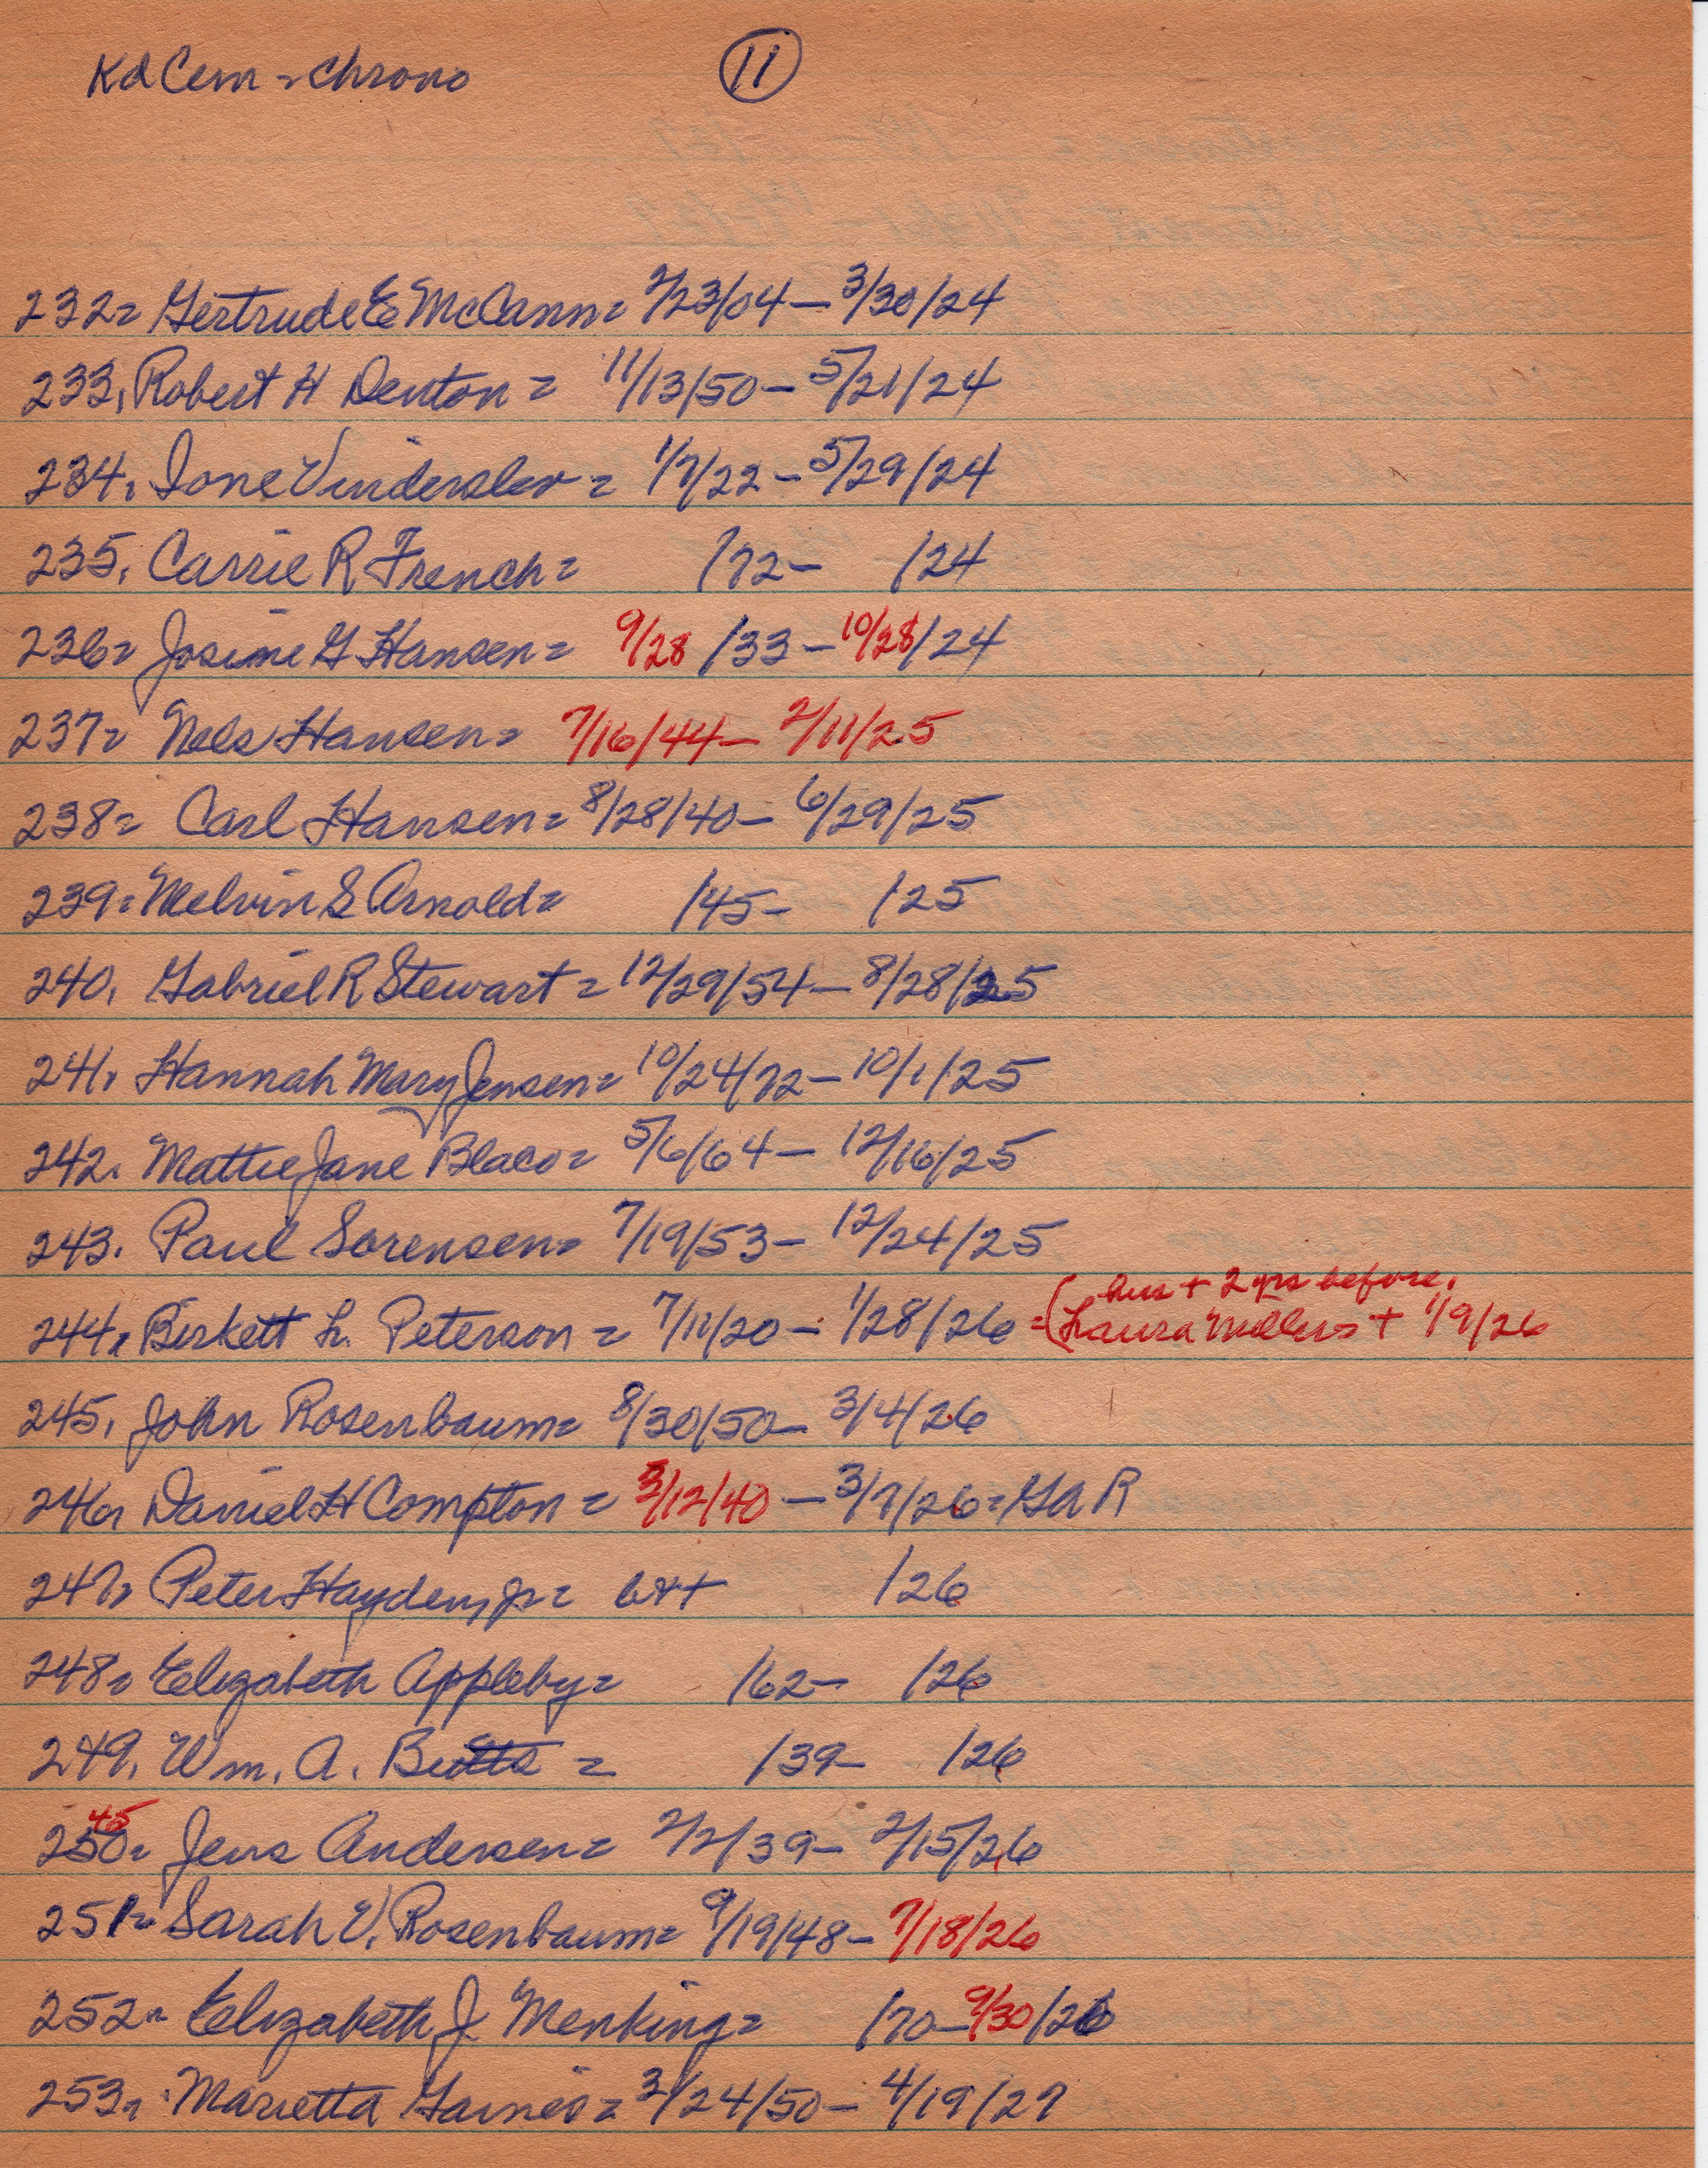 Kd Cem = Chrono
11
232= Gertrude E McCann= 2/23/04 - 3/30/24
233, Robert H Denton = 11/13/50 - 5/21/24
234, Ione Vinderslev = 1/7/22 - 5/29/24
235, Carrie R French= /72- /24
236= Josime G Hansen= 9/28 /33 - 10/28/24
237= Nels Hansen= 7/16/44 - 2/11/25
238= Carl Hansen= 8/28/40 - 6/29/25
239= Melvin S Arnold= /45- /25
240, Gabriel R Stewart = 12/29/54 - 8/28/25
241, Hannah Mary Jensen= 10/24/72 - 10/1/25
242, Mattie Jane Blaco= 5/6/64 - 12/16/25
243. Paul Sorensen= 7/19/53 - 12/24/25
hus + 2 yrs before.
244, Birkett L. Peterson = 7/11/20 - 1/28/26 = (Laura Millers + 1/9/26
245, John Rosenbaum= 8/30/50 - 3/4/26
246, Daniel H Compton = /12/40 - 3/7/26= GAR
247, Peter Hayden, Jr= b&+ /26
248= Elizabeth Appleby= /62- /26
249, Wm. A. Butts = /39- /26
45
250= Jens Andersen= 2/2/39 - 2/15/26
251= Sarah V. Rosenbaum= 9/19/48 - 7/18/26
252= Elizabeth J. Menking= /70 - 9/30/26
253, Marietta Gaines = 3/24/50 - 4/19/27